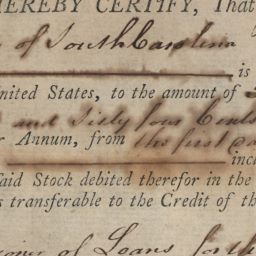 HEREBY CERTIFY, That
of South Carolina
is
nited States, to the amount of
and Sixty four Cents
Annum, from the first
inc
aid Stock debited therefor in the
s transferable to the Credit of th
of Loans for the